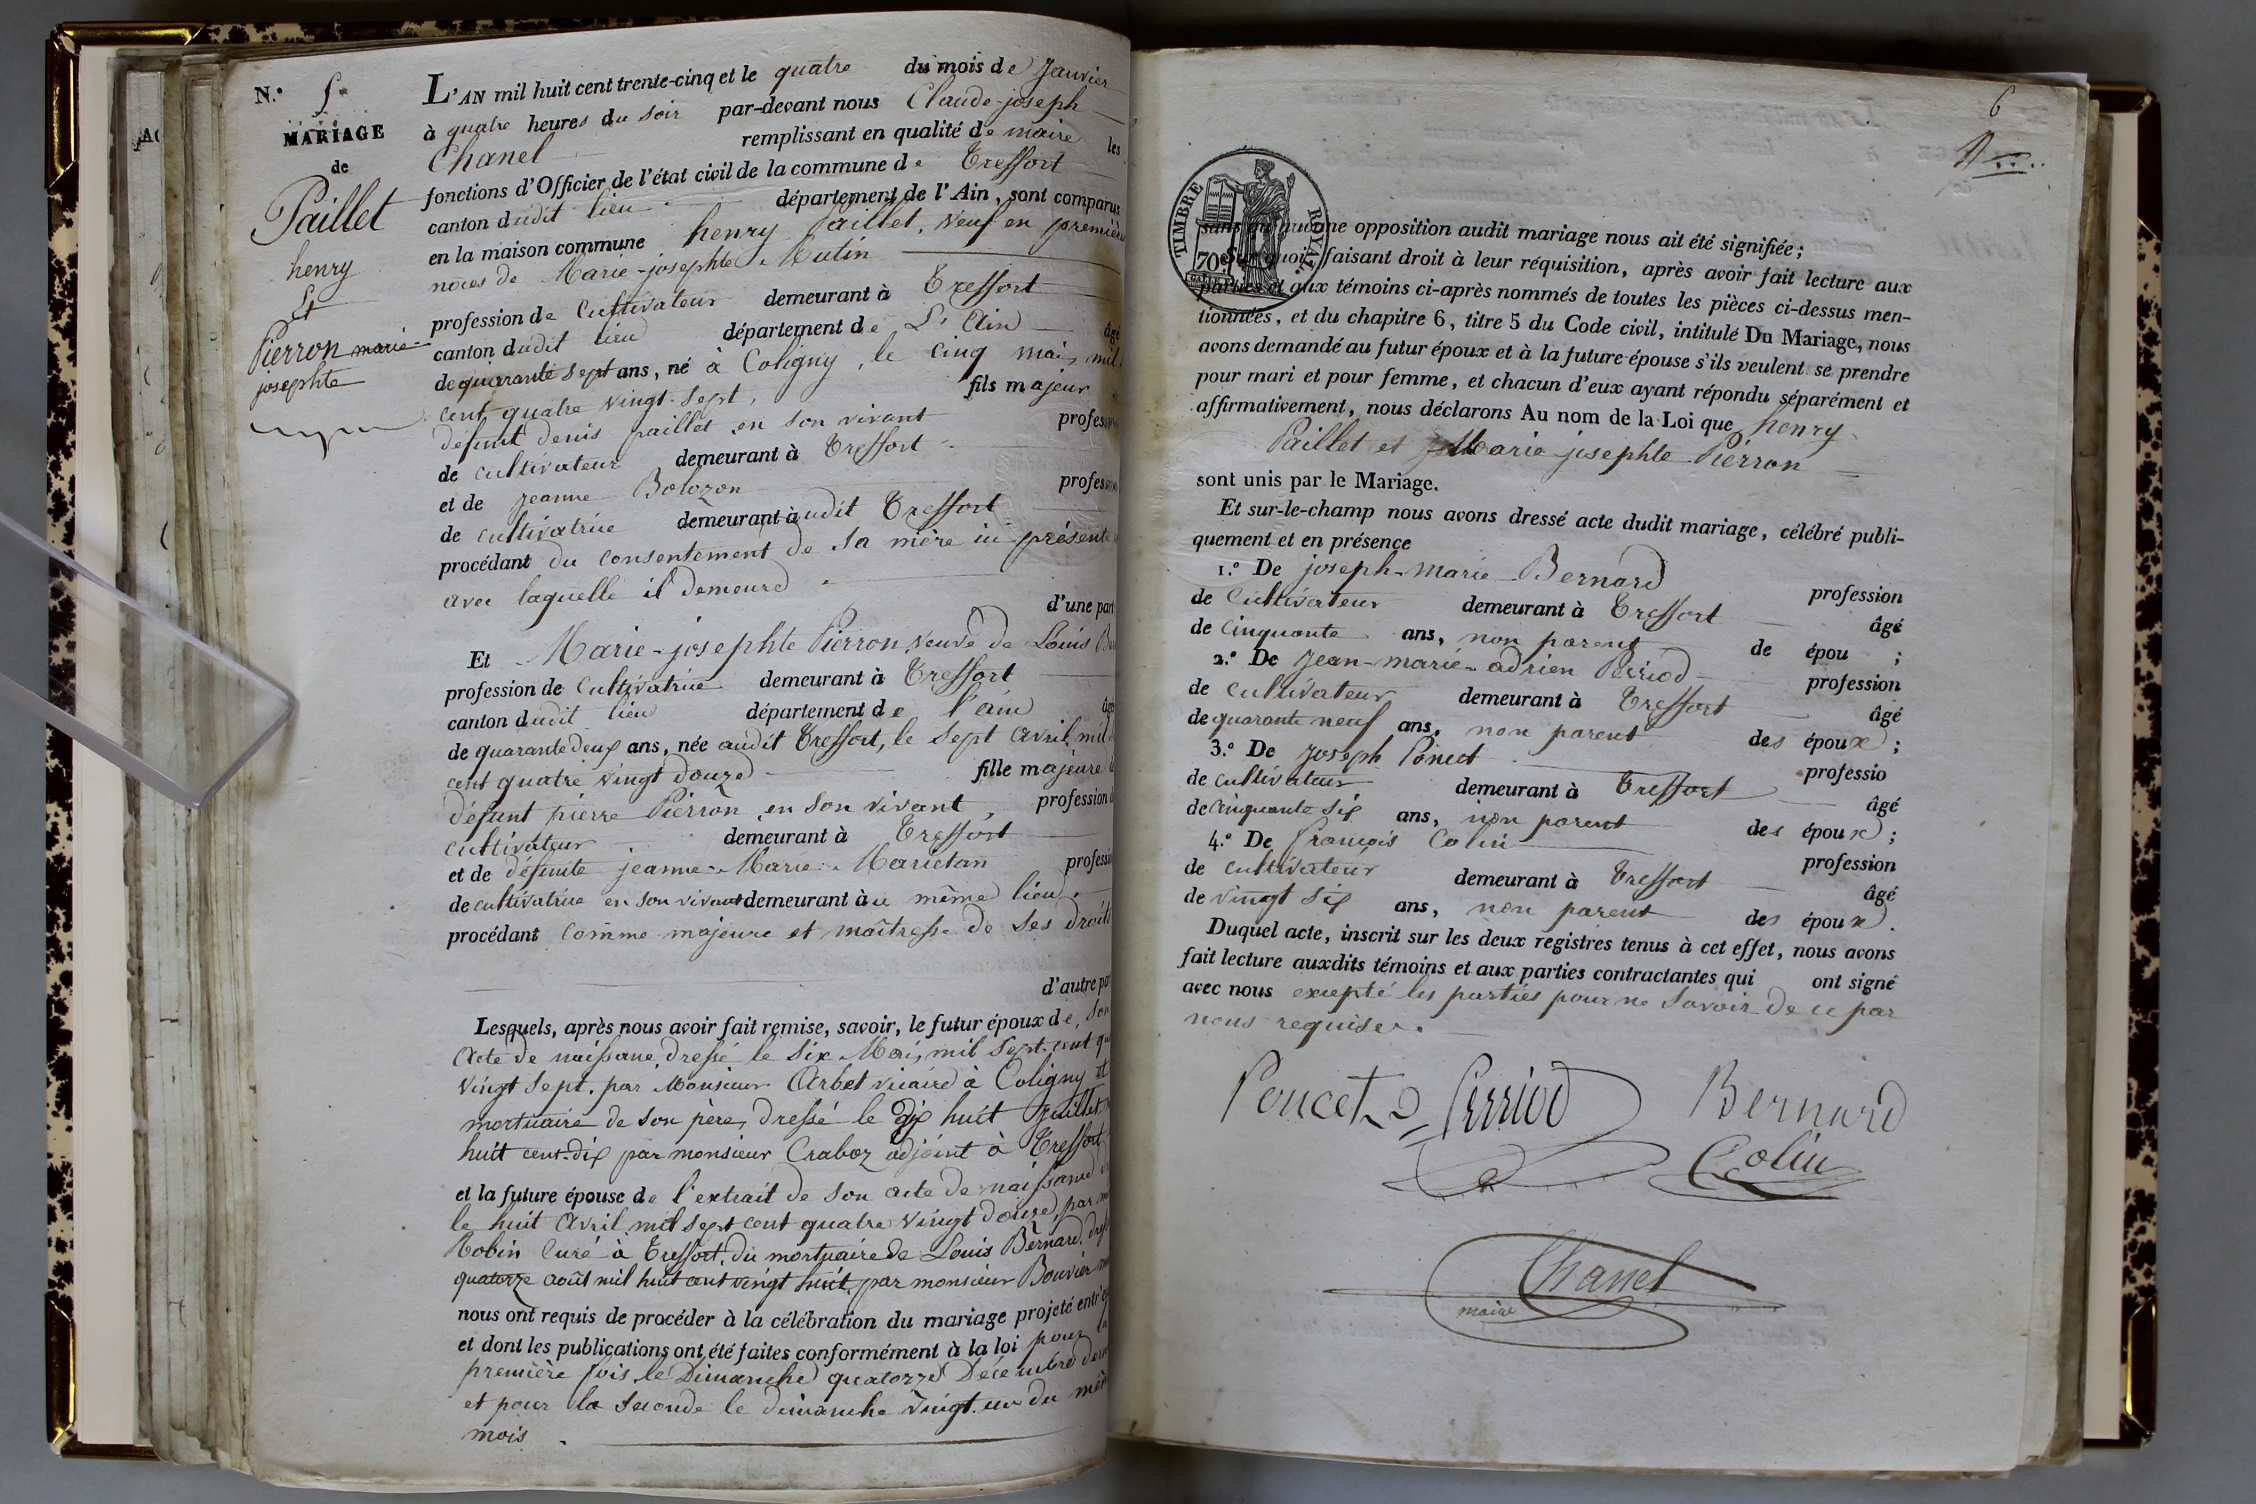 N.º 5.
MARIAGE
de
Paillet
henry
Et
Pierron marie-
josephte
L'AN mil huit cent trente-cinq et le quatre du mois de Janvier
à quatre heures du soir par-devant nous Claude-joseph
Chanel remplissant en qualité de maire les
fonctions d'Officier de l'état civil de la commune de Treffort
canton dudit lieu département de l'Ain, sont comparus
en la maison commune henry Paillet, veuf en première
noces de Marie-josephte Mutin
profession de Cultivateur demeurant à Treffort
canton dudit lieu département de L'Ain âgé
de quarante sept ans, né à Coligny, le cinq mai, mil
cent quatre vingt-sept, fils majeur
défunt denis paillet en son vivant profession
de cultivateur demeurant à Treffort
et de jeanne Bolozon profession
de cultivatrice demeurant audit Treffort
procédant du consentement de sa mère ici présente
avec laquelle il demeure
d'une part
Et Marie-josephte Pierron veuve de Louis
profession de Cultivatrice demeurant à Treffort
canton dudit lieu département de l'ain âgée
de quarante deux ans, née audit Treffort, le sept avril mil
cent quatre vingt douze fille majeure
défunt pierre Pierron en son vivant profession
cultivateur demeurant à Treffort
et de défunte jeanne-Marie Marietan profession
de cultivatrice en son vivant demeurant au même lieu
procédant comme majeure et maîtresse de ses droits
d'autre part
Lesquels, après nous avoir fait remise, savoir, le futur époux de, son
acte de naissance dressé le six Mai, mil sept cent
vingt sept, par Monsieur Arbet vicaire à Coligny et
mortuaire de son père, dressé le dix huit juillet
huit cent-dix par monsieur Craboz adjoint à Treffort
et la future épouse de l'extrait de son acte de naissance
le huit avril mil sept cent quatre vingt douze, par
Robin Curé à Treffort, du mortuaire de Louis Bernard,
quatorze août mil huit cent vingt huit par monsieur Bouvier
nous ont requis de procéder à la célébration du mariage projeté entr'
et dont les publications ont été faites conformément à la loi pour la
première fois le Dimanche quatorze Décembre
et pour la seconde le dimanche vingt-un du même
mois.
6
TIMBRE ROYAL
70
sans qu'aucune opposition audit mariage nous ait été signifiée;
Sur quoi, faisant droit à leur réquisition, après avoir fait lecture aux
parties et aux témoins ci-après nommés de toutes les pièces ci-dessus men-
tionnées, et du chapitre 6, titre 5 du Code civil, intitulé Du Mariage, nous
avons demandé au futur époux et à la future épouse s'ils veulent se prendre
pour mari et pour femme, et chacun d'eux ayant répondu séparément et
affirmativement, nous déclarons Au nom de la Loi que henry
Paillet et Marie-josephte Pierron
sont unis par le Mariage.
Et sur-le-champ nous avons dressé acte dudit mariage, célébré publi-
quement et en présence
1.º De joseph-marie Bernard profession
de Cultivateur demeurant à Treffort âgé
de cinquante ans, non parent de épou ;
2.º De jean-marie-adrien Perriod profession
de cultivateur demeurant à Treffort âgé
de quarante neuf ans, non parent des époux ;
3.º De joseph Poncet professio
de cultivateur demeurant à Treffort âgé
de cinquante six ans, non parent des époux ;
4.º De françois Colin profession
de cultivateur demeurant à Treffort âgé
de vingt six ans, non parent des époux.
Duquel acte, inscrit sur les deux registres tenus à cet effet, nous avons
fait lecture auxdits témoins et aux parties contractantes qui ont signé
avec nous excepté les parties pour ne savoir de ce par
nous requises.
Poncet Perriod Bernard
Colin
Chanel
maire